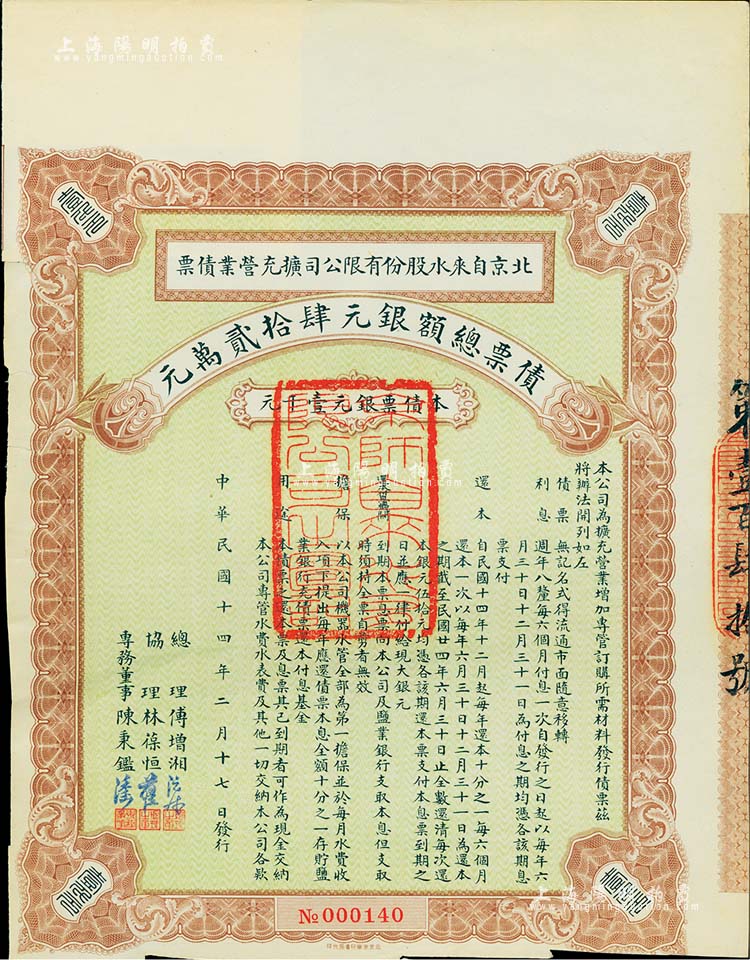 上海陽明拍賣
www.yangmingauction.com
北京自來水股份有限公司擴充營業債票
債票總額銀元肆拾貳萬元
本債票銀元壹千元
本公司為擴充營業增加專管訂購所需材料發行債票茲
將辦法開列如左
債票 無記名式得流通市面隨意移轉
利息 週年八釐每六個月付息一次自發行之日起以每年六
月三十日十二月三十一日為付息之期均憑各該期息
票支付
還本 自民國十四年十二月起每年還本十分之一每六個月
還本一次以每年六月三十日十二月三十一日為還本
之期截至民國廿四年六月三十日止全數還清每次還
本銀元伍拾元均憑各該期還本票支付本息票到期之
日並應一律付給現大銀元
到期本票息票向本公司及鹽業銀行支取本息但支取
時須持全票自剪者無效
擔保 以本公司機器水管全部為第一擔保並於每月水費收
入項下提出每年應還債票本息全額十分之一存貯鹽
業銀行充債票還本付息基金
用途 本債票之還本票及息票其已到期者可作為現金交納
本公司專管水費水表費及其他一切交納本公司各款
中華民國十四年二月十七日發行
總理傅增湘
協理林葆恒
專務董事陳秉鑑
第壹百肆拾號
上海陽明拍賣
www.yangmingauction.com
№000140
上海陽明拍賣
www.yangmingauction.com